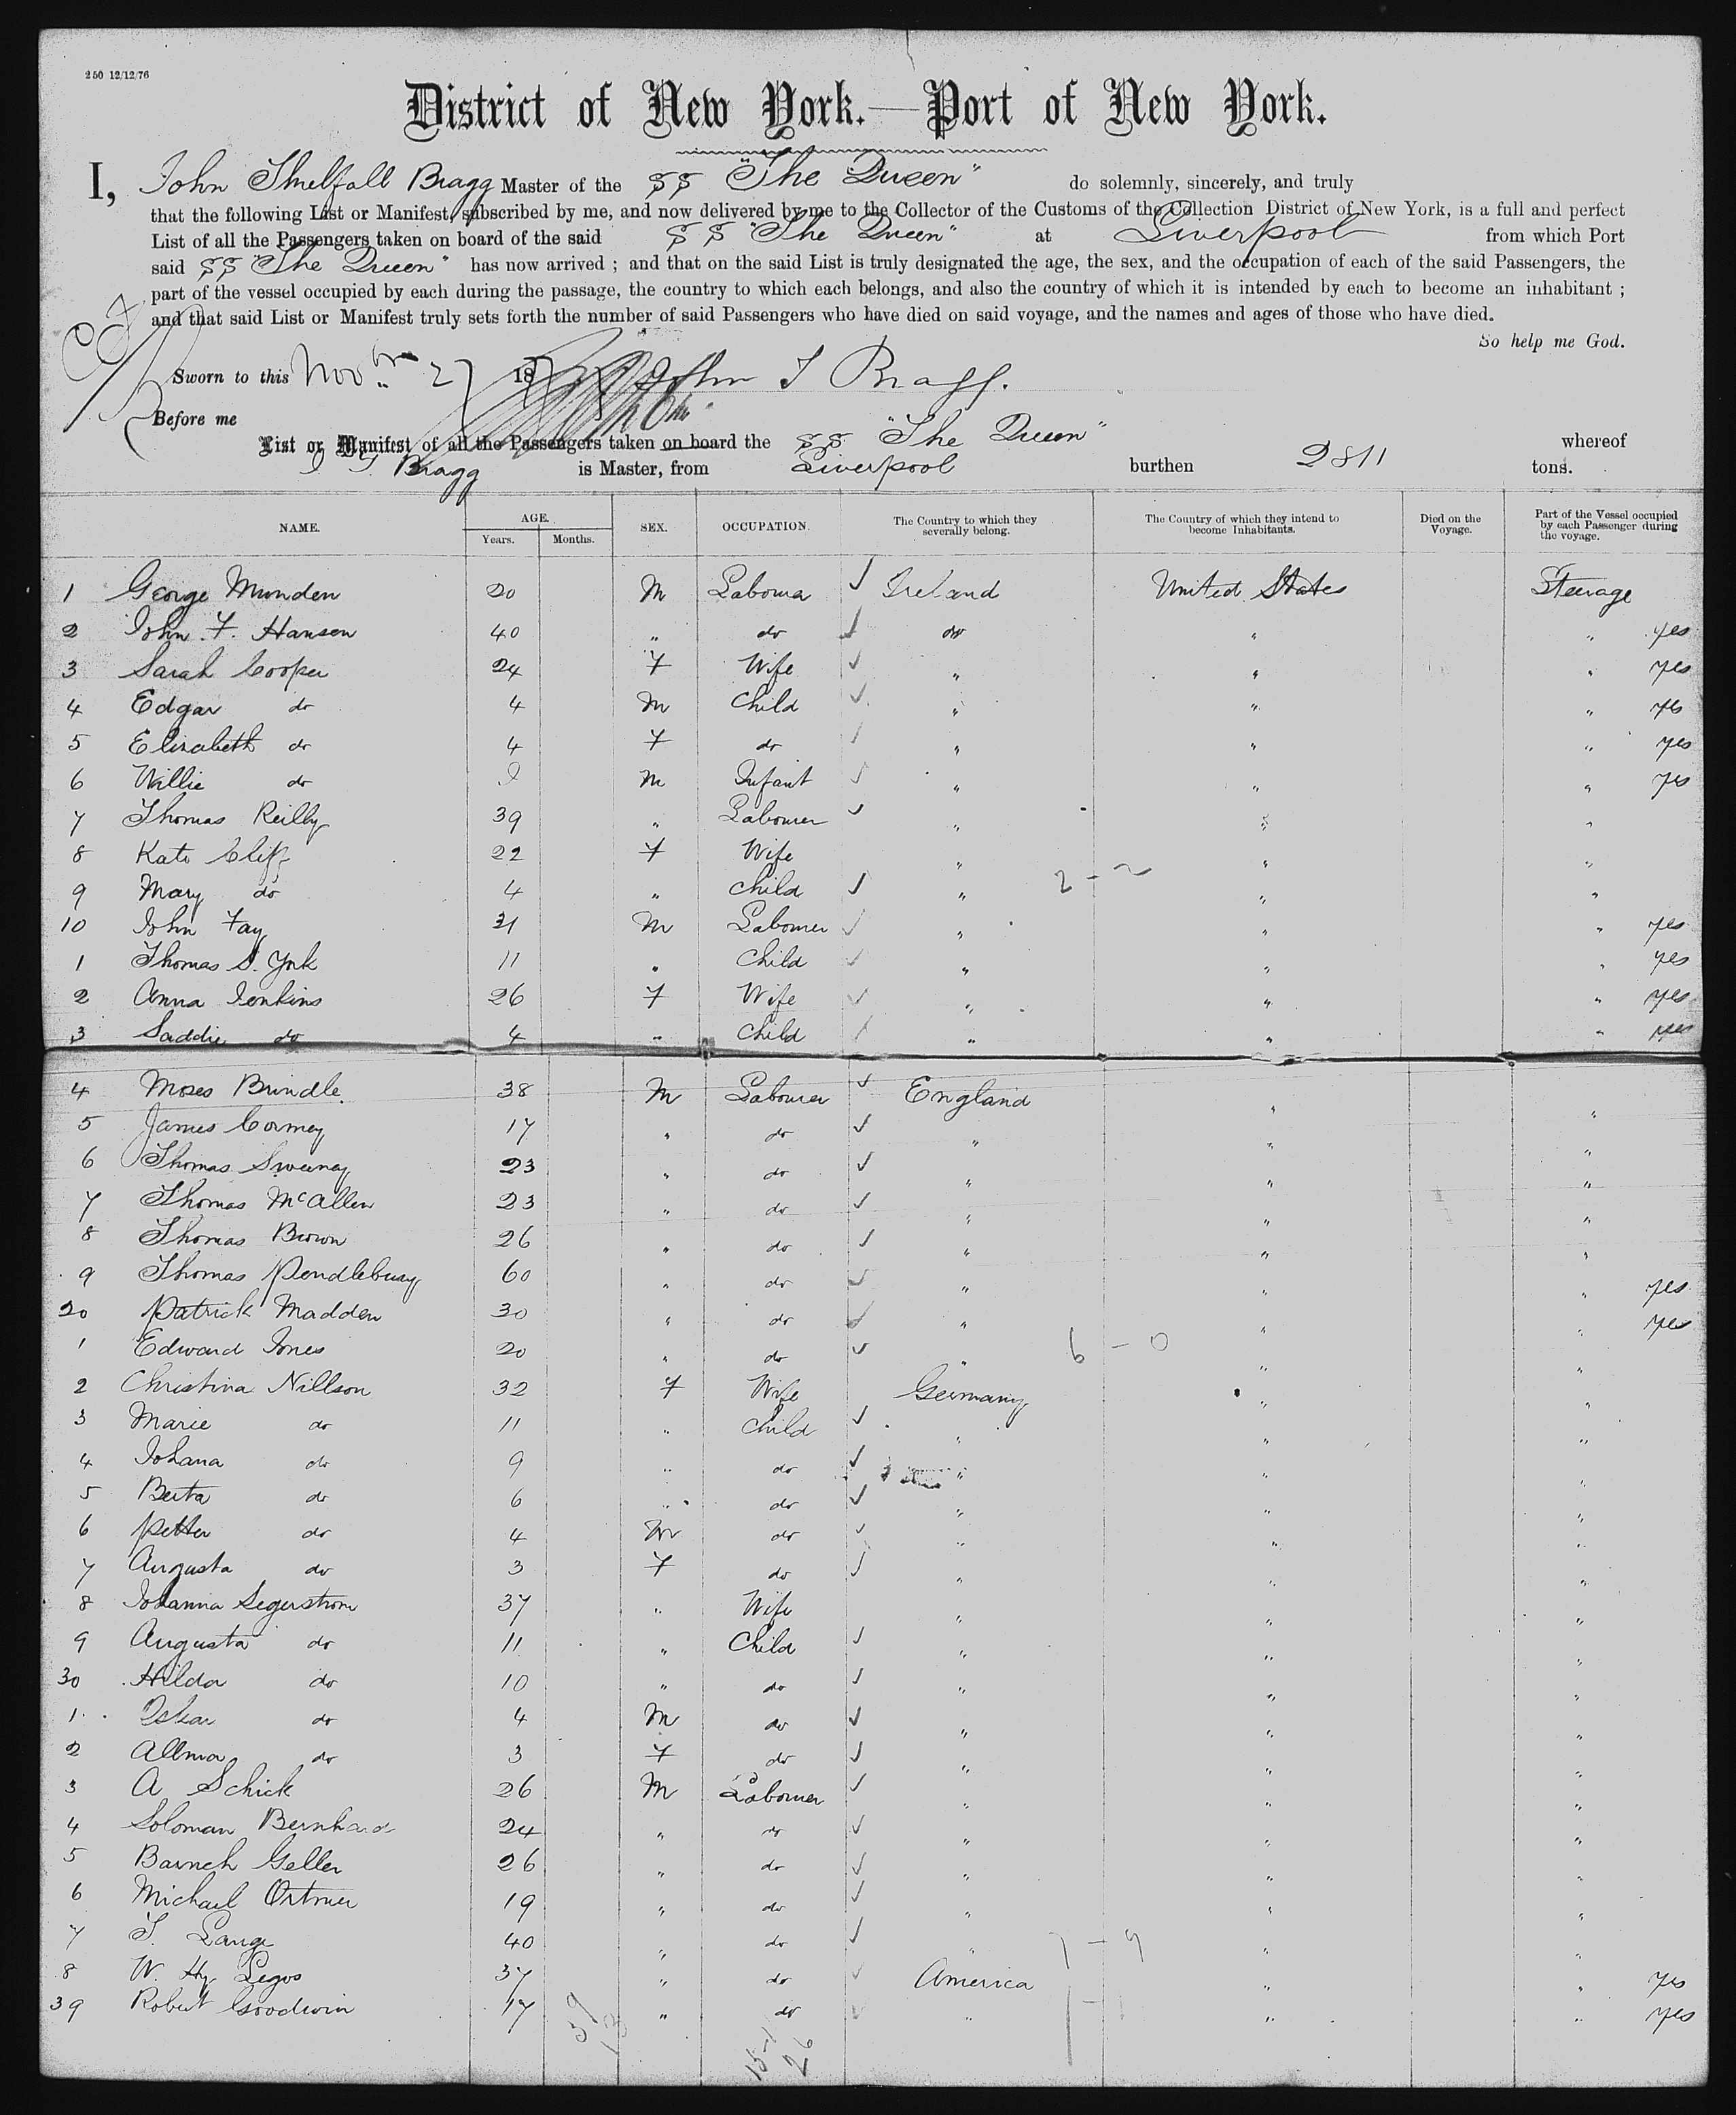 250 12/12/76
District of New York.—Port of New York.
I, John Thelfall Bragg Master of the SS "The Queen" do solemnly, sincerely, and truly
that the following List or Manifest, subscribed by me, and now delivered by me to the Collector of the Customs of the Collection District of New York, is a full and perfect
List of all the Passengers taken on board of the said SS "The Queen" at Liverpool from which Port
said SS "The Queen" has now arrived ; and that on the said List is truly designated the age, the sex, and the occupation of each of the said Passengers, the
part of the vessel occupied by each during the passage, the country to which each belongs, and also the country of which it is intended by each to become an inhabitant ;
and that said List or Manifest truly sets forth the number of said Passengers who have died on said voyage, and the names and ages of those who have died.
So help me God.
Sworn to this Nov 27 187 John T Bragg.
Before me
List or Manifest of all the Passengers taken on board the SS "The Queen" whereof
J T Bragg is Master, from Liverpool burthen 2811 tons.
NAME. AGE. Years. Months. SEX. OCCUPATION. The Country to which they severally belong. The Country of which they intend to become Inhabitants. Died on the Voyage. Part of the Vessel occupied by each Passenger during the voyage.
1 George Munden 20 M Laborer ✓ Ireland United States Steerage
2 John F. Hansen 40 " do ✓ do " " yes
3 Sarah Cooper 24 F Wife ✓ " " " yes
4 Edgar do 4 M Child ✓ " " " yes
5 Elizabeth do 4 F do ✓ " " " yes
6 Willie do M Infant ✓ " " " yes
7 Thomas Reilly 39 " Labourer ✓ " " "
8 Kate Cliff 22 F Wife " " "
9 Mary do 4 " Child ✓ " 2 - 2 " "
10 John Fay 31 M Labourer ✓ " " " yes
1 Thomas S. York 11 " Child ✓ " " " yes
2 Anna Jenkins 26 F Wife ✓ " " " yes
3 Saddie do 4 " Child ✓ " " " yes
4 Moses Brindle 38 M Labourer ✓ England " "
5 James Cormey 17 " do ✓ " " "
6 Thomas Sweeney 23 " do ✓ " " "
7 Thomas McAllen 23 " do ✓ " " "
8 Thomas Brown 26 " do ✓ " " "
9 Thomas Pendlebury 60 " do ✓ " " " yes
20 Patrick Madden 30 " do ✓ " " " yes
1 Edward Jones 20 " do ✓ " 6 - 0 " "
2 Christina Nillson 32 F Wife Germany " "
3 Marie do 11 " Child ✓ " " "
4 Johana do 9 " do ✓ " " "
5 Berta do 6 " do ✓ " " "
6 Petter do 4 M do ✓ " " "
7 Augusta do 3 F do ✓ " " "
8 Johanna Segerstrom 37 " Wife " " "
9 Augusta do 11 " Child ✓ " " "
30 Hilda do 10 " do ✓ " " "
1 Oskar do 4 M do ✓ " " "
2 Allma do 3 F do ✓ " " "
3 A Schick 26 M Labourer ✓ " " "
4 Soloman Bernhard 24 " do ✓ " " "
5 Baruch Geller 26 " do ✓ " " "
6 Michael Ortmer 19 " do ✓ " " "
7 T. Lange 40 " do ✓ " 7 - 9 " "
8 W. Hy Legos 37 " do ✓ America " " yes
39 Robert Goodwin 17 " do ✓ " 1 - 1 " " yes
39
13
15-1
26